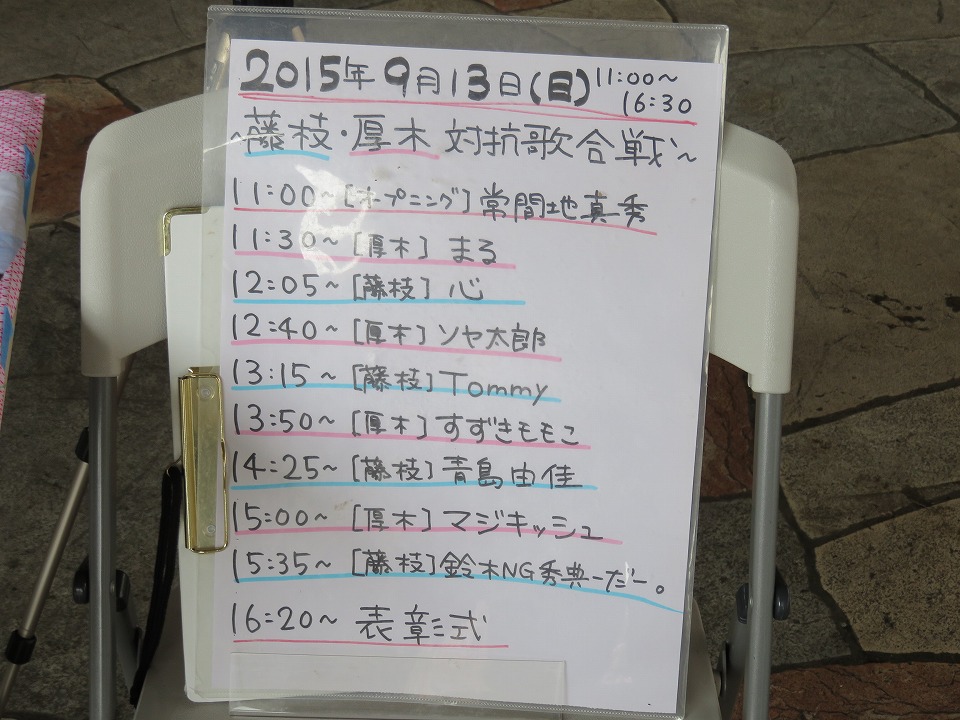 2015年9月13日(日) 11:00〜
16:30
〜藤枝・厚木 対抗歌合戦〜
11:00〜[オープニング]常間地真秀
11:30〜[厚木]まる
12:05〜[藤枝]心
12:40〜[厚木]ソヤ太郎
13:15〜[藤枝]Tommy
13:50〜[厚木]すずきモモこ
14:25〜[藤枝]青島由佳
15:00〜[厚木]マジキッシュ
15:35〜[藤枝]鈴木NG秀典ーだー。
16:20〜 表彰式